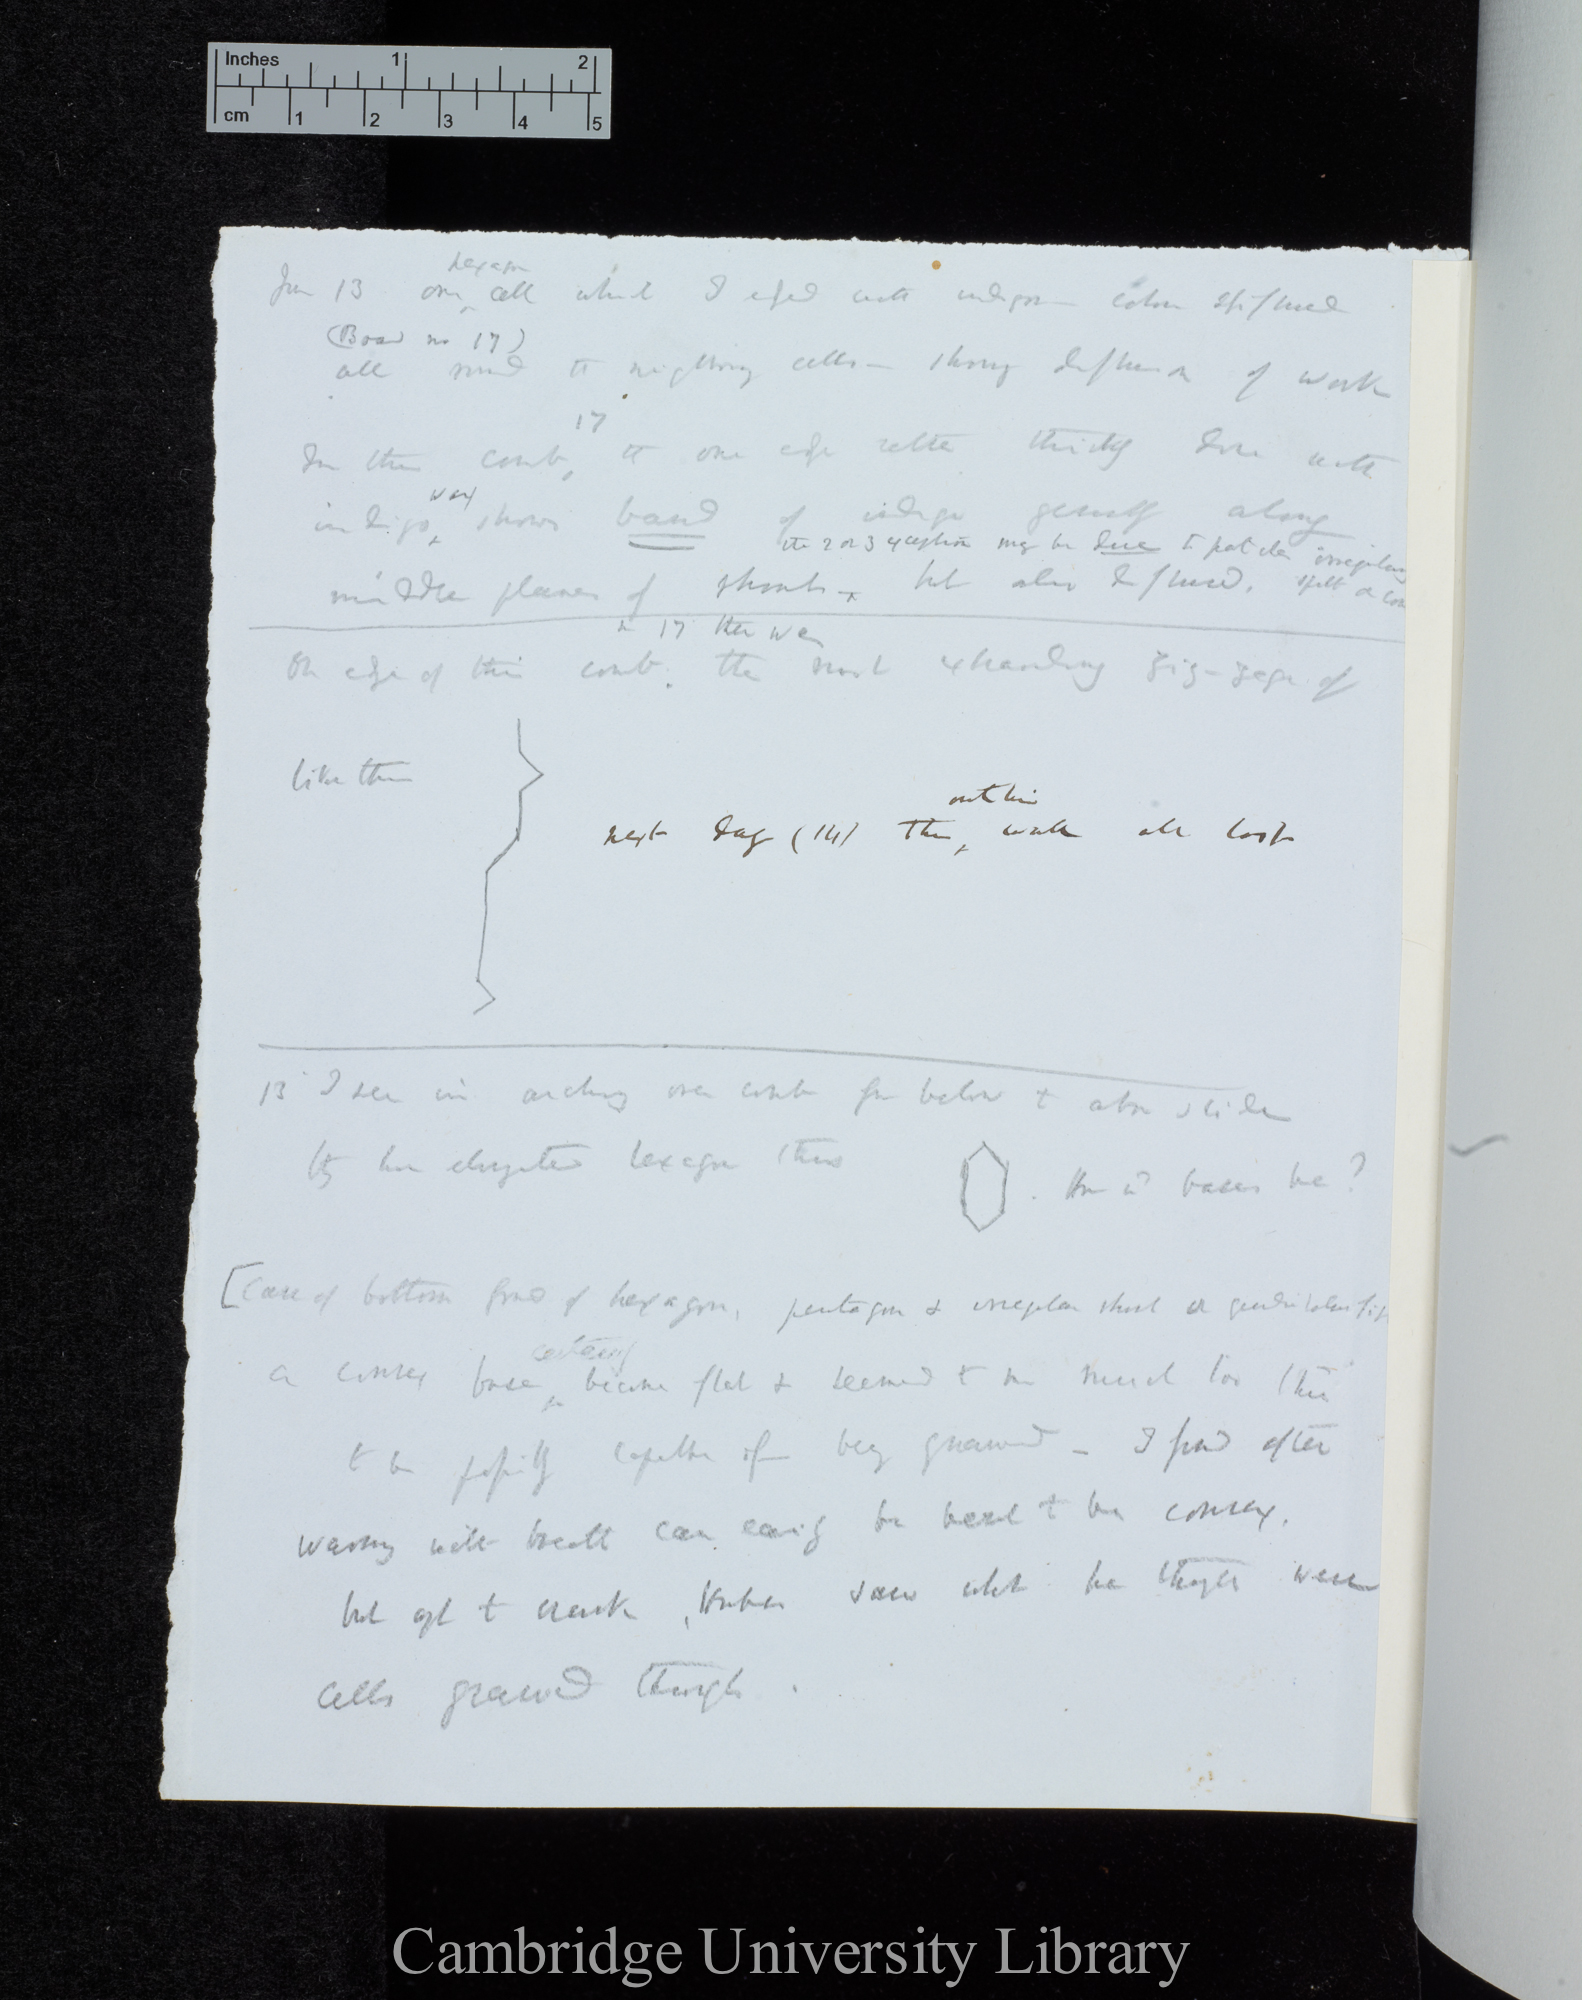 Inches 1 2
cm 1 2 3 4 5
hexagon
June 13 one cell which I edged with colour diffused
(Board no 17)
all round to neighbouring cells — showing diffusion of work
17
In this comb, the one edge rather thickly done with
wax
indigo, shows band of indigo generally along
the 2 or 3 exceptions may be due to particular irregular
middle planes of but also diffused.
in 17 there was
On edge of this comb. the most extraordinary zig-zags of
like this
outline
next day (14) this walls all lost
13 I see in arching over comb from below & above
by hexagon thus
. How will bases be?
[Case of bottom found of hexagon, pentagon & irregular
certainly
a convex base, became flat & seemed to me much too thin
to be possibly capable of being gnawed — I find after
warming with breath can easily be bent to be convex.
but apt to crack, Huber saw what he thought were
cells gnawed through.
Cambridge University Library